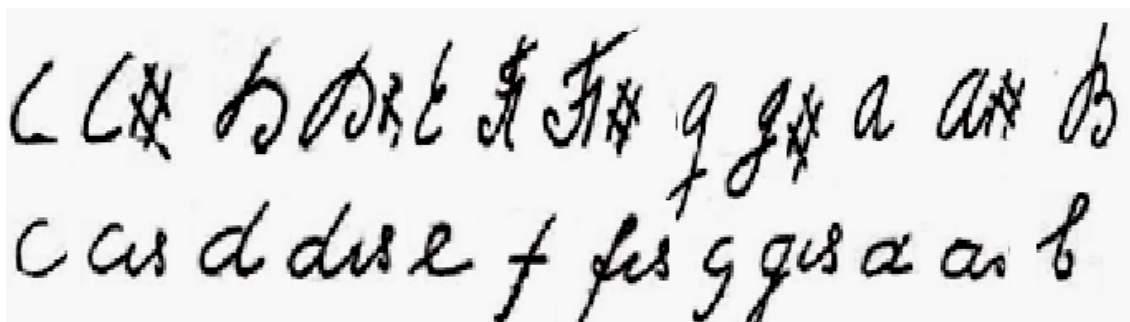 C C# D D# E F F# g g# a a# B
c cis d dis e f fis g gis a as b